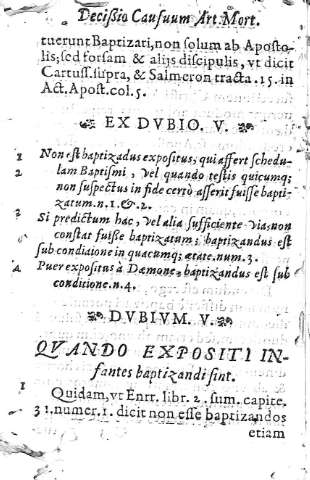 Decißio Casuum Art. Mort.
tuerunt Baptizati, non solum ab Aposto-
lis; sed forsam & alijs discipulis, vt dicit
Cartuss. supra, & Salmeron tracta. 15. in
Act. Apost. col. 5.
EX DVBIO. V.
1 Non est baptizãdus expositus, qui affert schedu-
2 lam Baptismi, vel quando testis quicumq;
non suspectus in fide certò asserit fuisse bapti-
zatum. n. 1. & 2.
3 Si predictum hac, vel alia sufficiente via, non
constat fuiße baptizatum; baptizandus est
sub condiaione in quacumq; ætate. num. 3.
4 Puer expositus à Dæmone, baptizandus est sub
conditione. n. 4.
DVBIVM. V.
QVANDO EXPOSITI IN-
fantes baptizandi sint.
1 Quidam, vt Enrr. libr. 2. sum. capite.
31. numer. 1. dicit non esse baptizandos
etiam